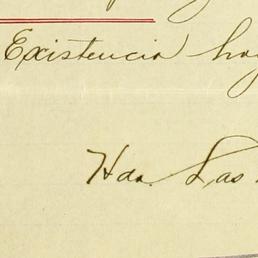 Existencia hoy
Hda. Las